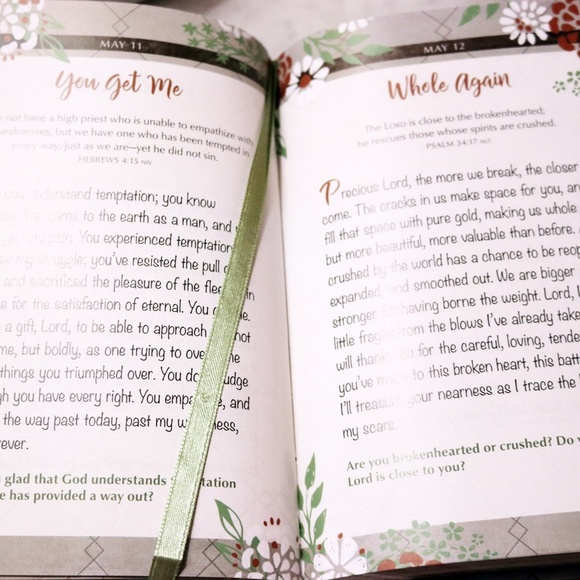 MAY 11
You Get Me
not have a high priest who is unable to empathize with
weaknesses, but we have one who has been tempted in
every way, just as we are—yet he did not sin.
HEBREWS 4:15 NIV
understand temptation; you know
came to the earth as a man, and
You experienced temptation
my struggle; you've resisted the pull
and sacrificed the pleasure of the
e for the satisfaction of eternal. You
a gift, Lord, to be able to approach not
me, but boldly, as one trying to
things you triumphed over. You do judge
gh you have every right. You and
the way past today, past my
ever.
glad that God understands
e has provided a way out?
MAY 12
Whole Again
The LORD is close to the brokenhearted;
he rescues those whose spirits are crushed.
PSALM 34:17 NLT
Precious Lord, the more we break, the closer
come. The cracks in us make space for you, an
fill that space with pure gold, making us whole
but more beautiful, more valuable than before.
crushed by the world has a chance to be
expanded, and smoothed out. We are bigger
stronger for having borne the weight. Lord, I
little from the blows I've already take
will you for the careful, loving, tende
you've to this broken heart, this batt
I'll your nearness as I trace the
my scars.
Are you brokenhearted or crushed? Do
Lord is close to you?